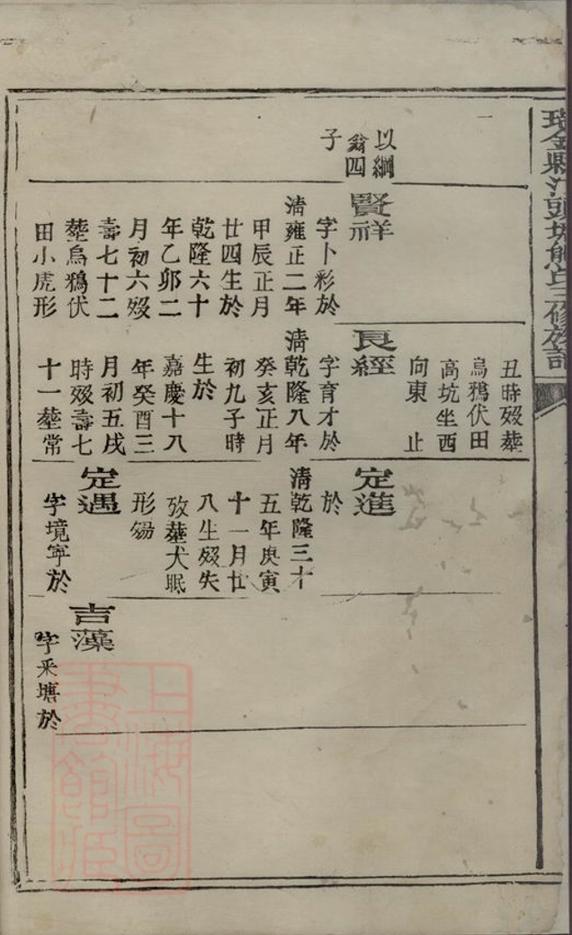 瑞金縣
三修族譜
一
以綱
翁四
子
賢祥
字卜彩於
清雍正二年
甲辰正月
廿四生於
乾隆六十
年乙卯二
月初六歿
壽七十二
塟烏鴉伏
田小虎形
丑時歿塟
烏鴉伏田
高坑坐西
向東 止
良經
字育才於
清乾隆八年
癸亥正月
初九子時
生於
嘉慶十八
年癸酉三
月初五戌
時歿壽七
十一塟常
定進
於
清乾隆三十
五年庚寅
十一月廿
八生歿失
攷塟犬眠
形
定遇
字境寧於
吉藻
字采塘於
上海圖
書館藏